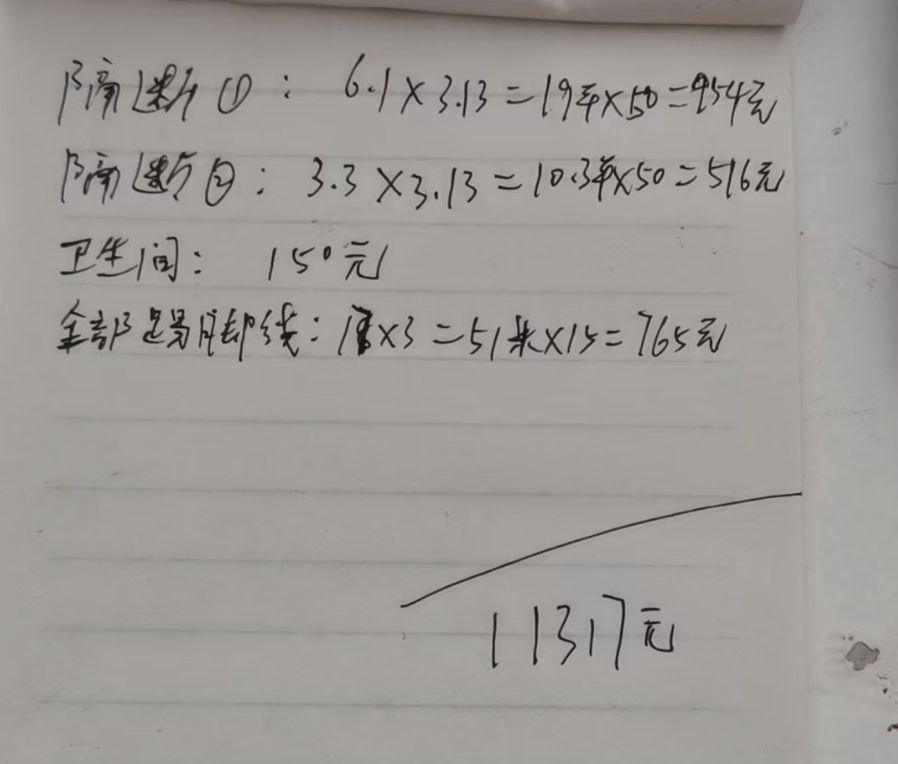 隔断①：6.1×3.13=19平×50=954元
隔断②：3.3×3.13=10.3平×50=516元
卫生间：150元
全部踢脚线：1×3=51米×15=765元
11317元